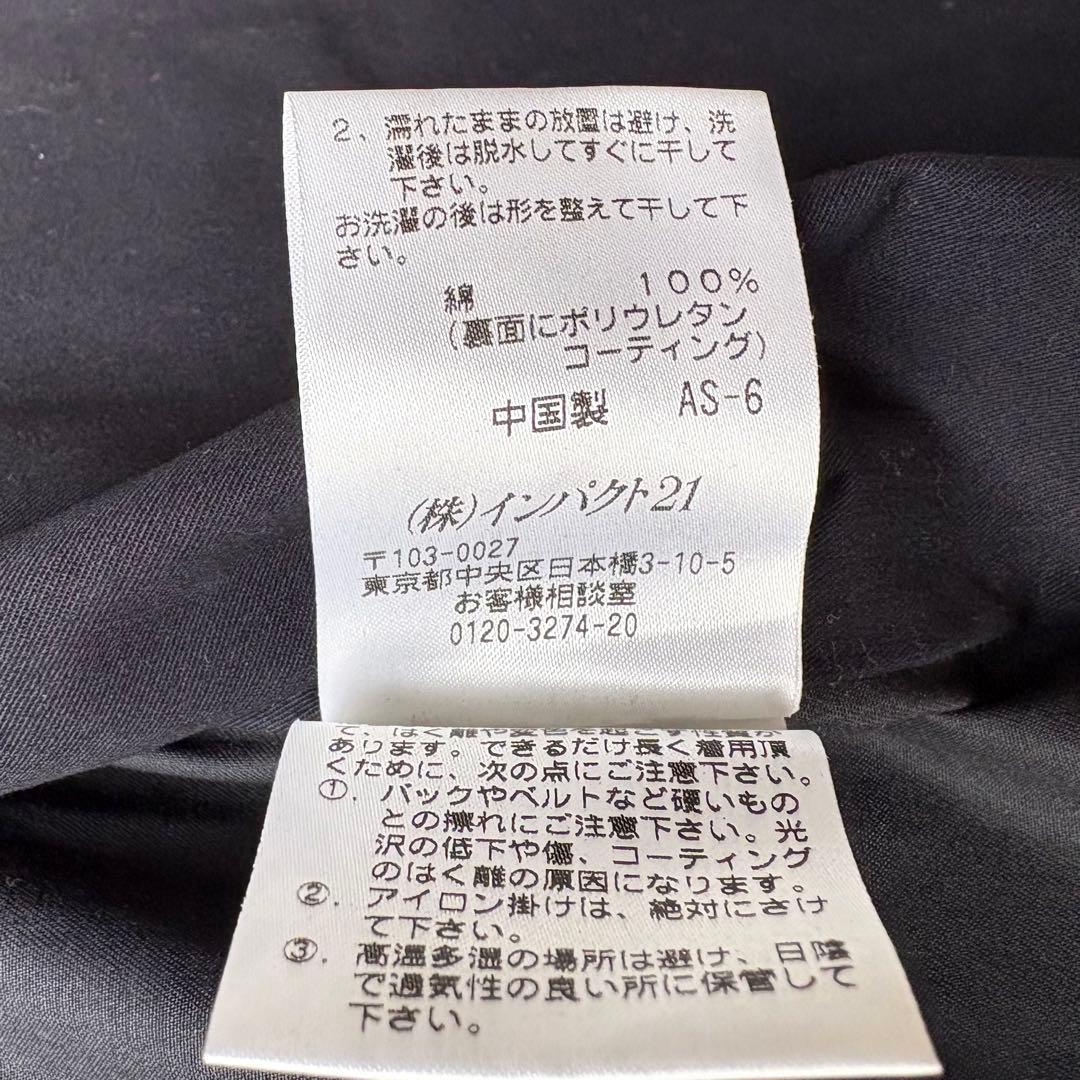 2．濡れたままの放置は避け、洗
濯後は脱水してすぐに干して
下さい。
お洗濯の後は形を整えて干して下
さい。
綿 100%
(裏面にポリウレタン
コーティング)
中国製 AS-6
(株)インパクト21
〒103-0027
東京都中央区日本橋3-10-5
お客様相談室
0120-3274-20
て、はく離や変色を起こす性質が
あります。できるだけ長く着用頂
くために、次の点にご注意下さい。
①．バックやベルトなど硬いもの
との擦れにご注意下さい。光
沢の低下や傷、コーティング
のはく離の原因になります。
②．アイロン掛けは、絶対にさけ
て下さい。
③．高温多湿の場所は避け、日陰
で通気性の良い所に保管して
下さい。